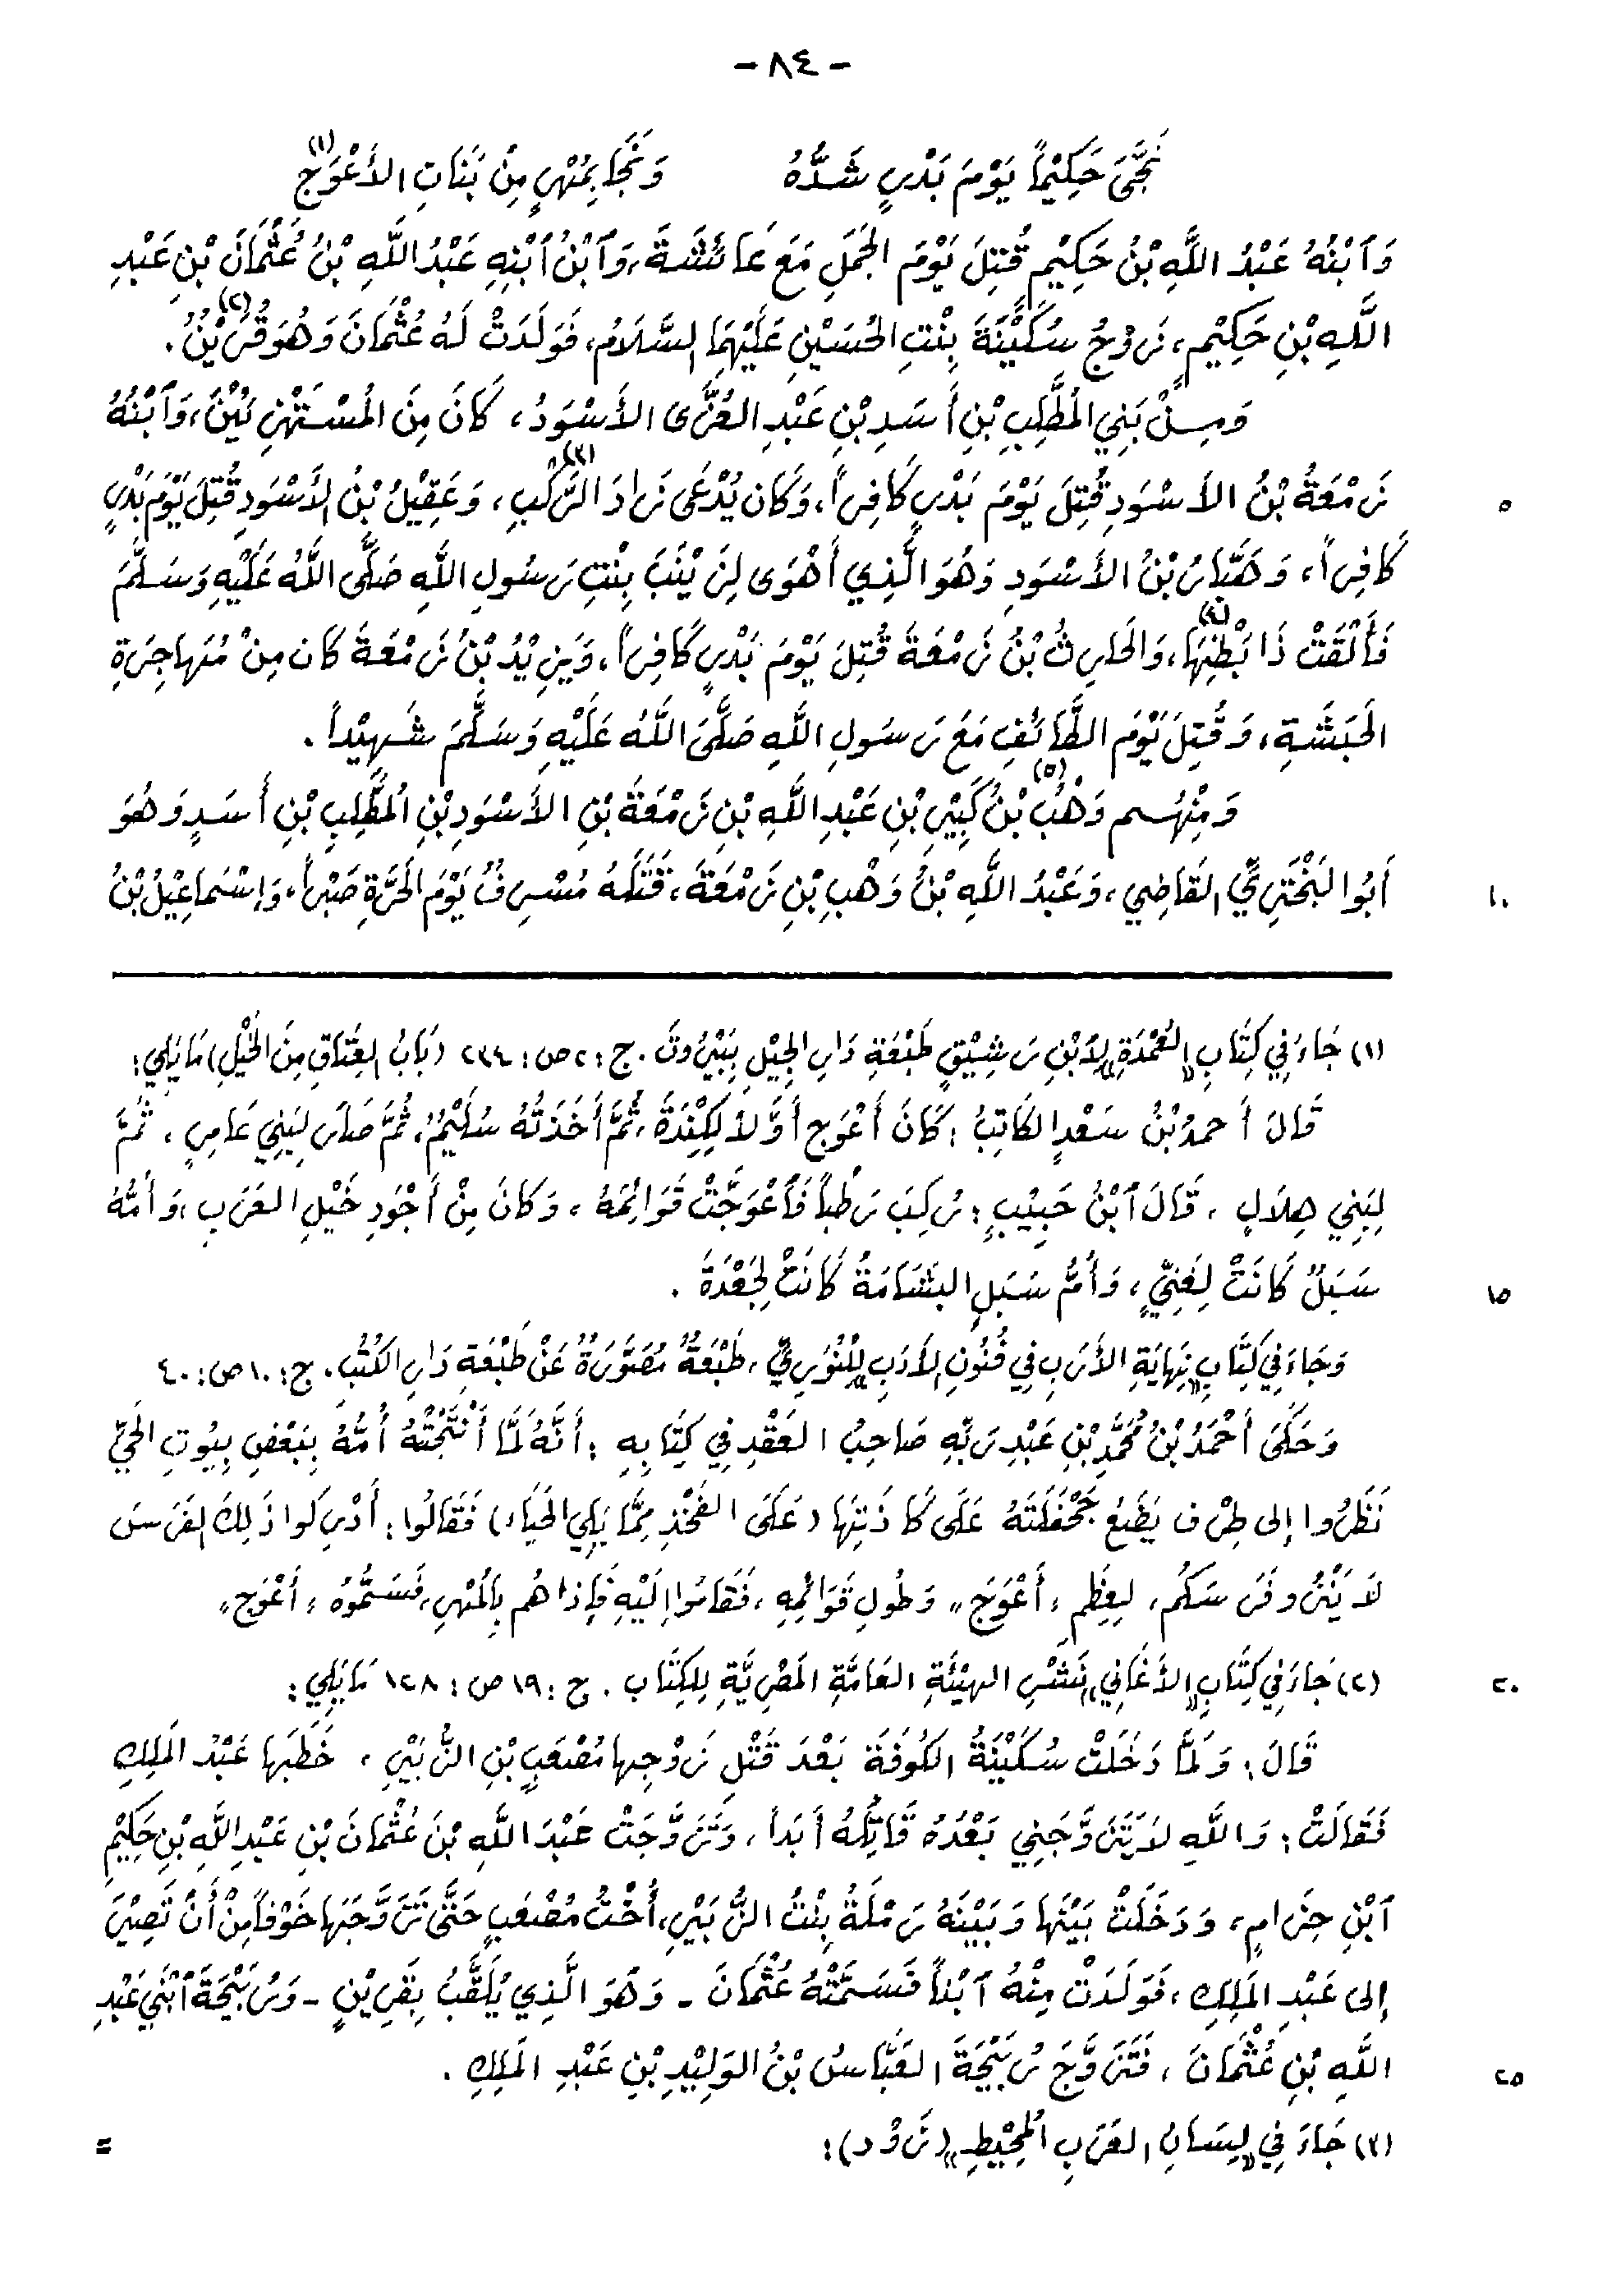 - ٨٤ -
نَجَّى حَكِيْماً يَوْمَ بَدْرٍ شَدُّهُ وَنَجَا بِمُهْرٍ مِنْ بَنَاتِ الأَعْوَجِ (١)
وَٱبْنُهُ عَبْدُ اللَّهِ بْنُ حَكِيْمٍ قُتِلَ يَوْمَ الجَمَلِ مَعَ عَائشَةَ، وَٱبْنُ ٱبْنِهِ عَبْدُ اللَّهِ بْنُ عُثْمَانَ بْنِ عَبْدِ
اللَّهِ بْنِ حَكِيْمٍ، زَوْجُ سُكَيْنَةَ بِنْتِ الحُسَيْنِ عَلَيْهِمَا السَّلَامُ، فَوَلَدَتْ لَهُ عُثْمَانَ وَهُوَ قُرَيْنٌ (٢).
وَمِنْ بَنِي المُطَّلِبِ بْنِ أَسَدِ بْنِ عَبْدِ العُزَّى الأَسْوَدُ، كَانَ مِنَ المُسْتَهْزِئِيْنَ، وَٱبْنُهُ
زَمْعَةُ بْنُ الأَسْوَدِ قُتِلَ يَوْمَ بَدْرٍ كَافِراً، وَكَان يُدْعَى زَادَ الرَّكْبِ (٣)، وَعَقِيْلُ بْنُ الأَسْوَدِ قُتِلَ يَوْمَ بَدْرٍ
٥
كَافِراً، وَهَبَّارُ بْنُ الأَسْوَدِ وَهُوَ الَّذِي أَهْوَى لِزَيْنَبَ بِنْتِ رَسُولِ اللَّهِ صَلَّى اللَّهُ عَلَيْهِ وَسَلَّمَ
فَأَلْقَتْ ذَا بَطْنِهَا (٤)، وَالحَارِثُ بْنُ زَمْعَةَ قُتِلَ يَوْمَ بَدْرٍ كَافِراً، وَيَزِيْدُ بْنُ زَمْعَةَ كَان مِنْ مُهَاجِرَةِ
الحَبَشَةِ، وَقُتِلَ يَوْمَ الطَّائفِ مَعَ رَسُولِ اللَّهِ صَلَّى اللَّهُ عَلَيْهِ وَسَلَّمَ شَهِيْداً.
وَمِنْهُم وَهْبُ (٥) بْنُ كَبِيْرِ بْنِ عَبْدِ اللَّهِ بْنِ زَمْعَةَ بْنِ الأَسْوَدِ بْنِ المُطَّلِبِ بْنِ أَسَدٍ وَهُوَ
أَبُو البَخْتَرِيِّ القَاضِي، وَعَبْدُ اللَّهِ بْنُ وَهْبِ بْنِ زَمْعَةَ، قَتَلَهُ مُسْرِفٌ يَوْمَ الحَرَّةِ صَبْراً، وَإسْمَاعِيْلُ بْنُ
١٠
(١) جَاءَ فِي كِتَابِ «العُمْدَةِ» لِابْنِ رَشِيْقٍ طَبْعَةِ دَارِ الجِيْلِ بِبَيْرُوتَ. ج: ٢ ص: ٢٣٤ (بَابُ العِتَاقِ مِنَ الخَيْلِ) مَا يَلِي:
قَالَ أَحمدُ بْنُ سَعْدٍ الكَاتِبُ: كَانَ أَعْوَجِ أَوَّلاً لِكِنْدَةَ، ثُمَّ أَخَذَتْهُ سُلَيْمٌ، ثُمَّ صَارَ لِبَنِي عَامِرٍ، ثُمَّ
لِبَنِي هِلَالٍ، قَالَ ٱبْنُ حَبِيْبٍ: رُكِبَ رَطْباً فَٱعْوَجَّتْ قَوَائِمُهُ، وَكَانَ مِنْ أَجْوَدِ خَيْلِ العَرَبِ، وَأُمُّهُ
سَبَلٌ كَانَتْ لِغَنِيٍّ، وَأُمُّ سَبَلٍ البَشَامَةُ كَانَتْ لِجَعْدَةَ.
١٥
وَجَاءَ فِي كِتَابِ «نِهَايَةِ الأَرَبِ فِي فُنُونِ الأَدَبِ» لِلنُّوَيرِيِّ، طَبْعَةٌ مُصَوَّرَةٌ عَنْ طَبْعَةِ دَارِ الكُتُبِ. ج: ١٠ ص: ٤٠
وَحَكَى أَحْمَدُ بْنُ مُحَمَّدِ بْنِ عَبْدِ رَبِّهِ صَاحِبُ العَقْدِ فِي كِتَابِهِ: أَنَّهُ لَمَّا أَنْتَجَتْهُ أُمُّهُ بِبَعْضِ بِيُوتِ الحَيِّ
نَظَرُوا إلى طِرْف يَضَعُ جَحْفَلَتَهُ عَلَى كَاذَتِهَا (عَلَى الفَخْذِ مِمَّا يَلِي الحَيَاءَ) فَقَالُوا: أَدْرِكُوا ذَلِكَ الفَرَسَ
لَا يَنْزُو فَرَسَكُم، لِعِظَمِ «أَعْوَجَ» وَطُولِ قَوَائِمِهِ، فَقَامُوا إلَيْهِ فَإذا هُم بِالمُهْرِ، فَسَمُّوهُ «أَعْوَجَ»
(٢) جَاءَ فِي كِتَابِ «الأَغَانِي» نَشْرِ الهَيْئَةِ العَامَّةِ المَصْرِيَّةِ لِلكِتَابِ. ج: ١٩ ص: ١٢٨ مَا يَلِي:
٢٠
قَالَ: وَلَمَّا دَخَلَتْ سُكَيْنَةُ الكُوفَةَ بَعْدَ قَتْلِ زَوْجِها مُصْعَبِ بْنِ الزُّبَيْرِ، خَطَبَها عَبْدُ المَلِكِ
فَقَالَتْ: وَاللَّهِ لَا يَتَزَوَّجَنِي بَعْدَهُ قَاتِلُهُ أَبَداً، وَتَزَوَّجَتْ عَبْدَ اللَّهِ بْنَ عُثْمَانَ بْنِ عَبْدِ اللَّهِ بْنِ حَكِيْمِ
ٱبْنِ حِزَامٍ، وَدَخَلَتْ بَيْنَها وَبَيْنَهُ رَمْلَةُ بِنْتُ الزُّبَيْرِ، أُخْتُ مُصْعَبٍ حَتَّى تَزَوَّجَهَا خَوْفاً مِنْ أَنْ تَصِيْرَ
إلى عَبْدِ المَلِكِ، فَوَلَدَتْ مِنْهُ ٱبْناً فَسَمَّتْهُ عُثْمَانَ - وَهُوَ الَّذِي يُلَقَّبُ بِقُرَيْنٍ - وَرُبَيْحَةَ ٱبْنَيْ عَبْدِ
اللَّهِ بْنِ عُثْمَانَ، فَتَزَوَّجَ رُبَيْحَةَ العَبَّاسُ بْنُ الوَلِيْدِ بْنِ عَبْدِ المَلِكِ.
٢٥
(٣) جَاءَ فِي «لِسَانِ العَرَبِ المُحِيْطِ» (زَوَدَ):
=